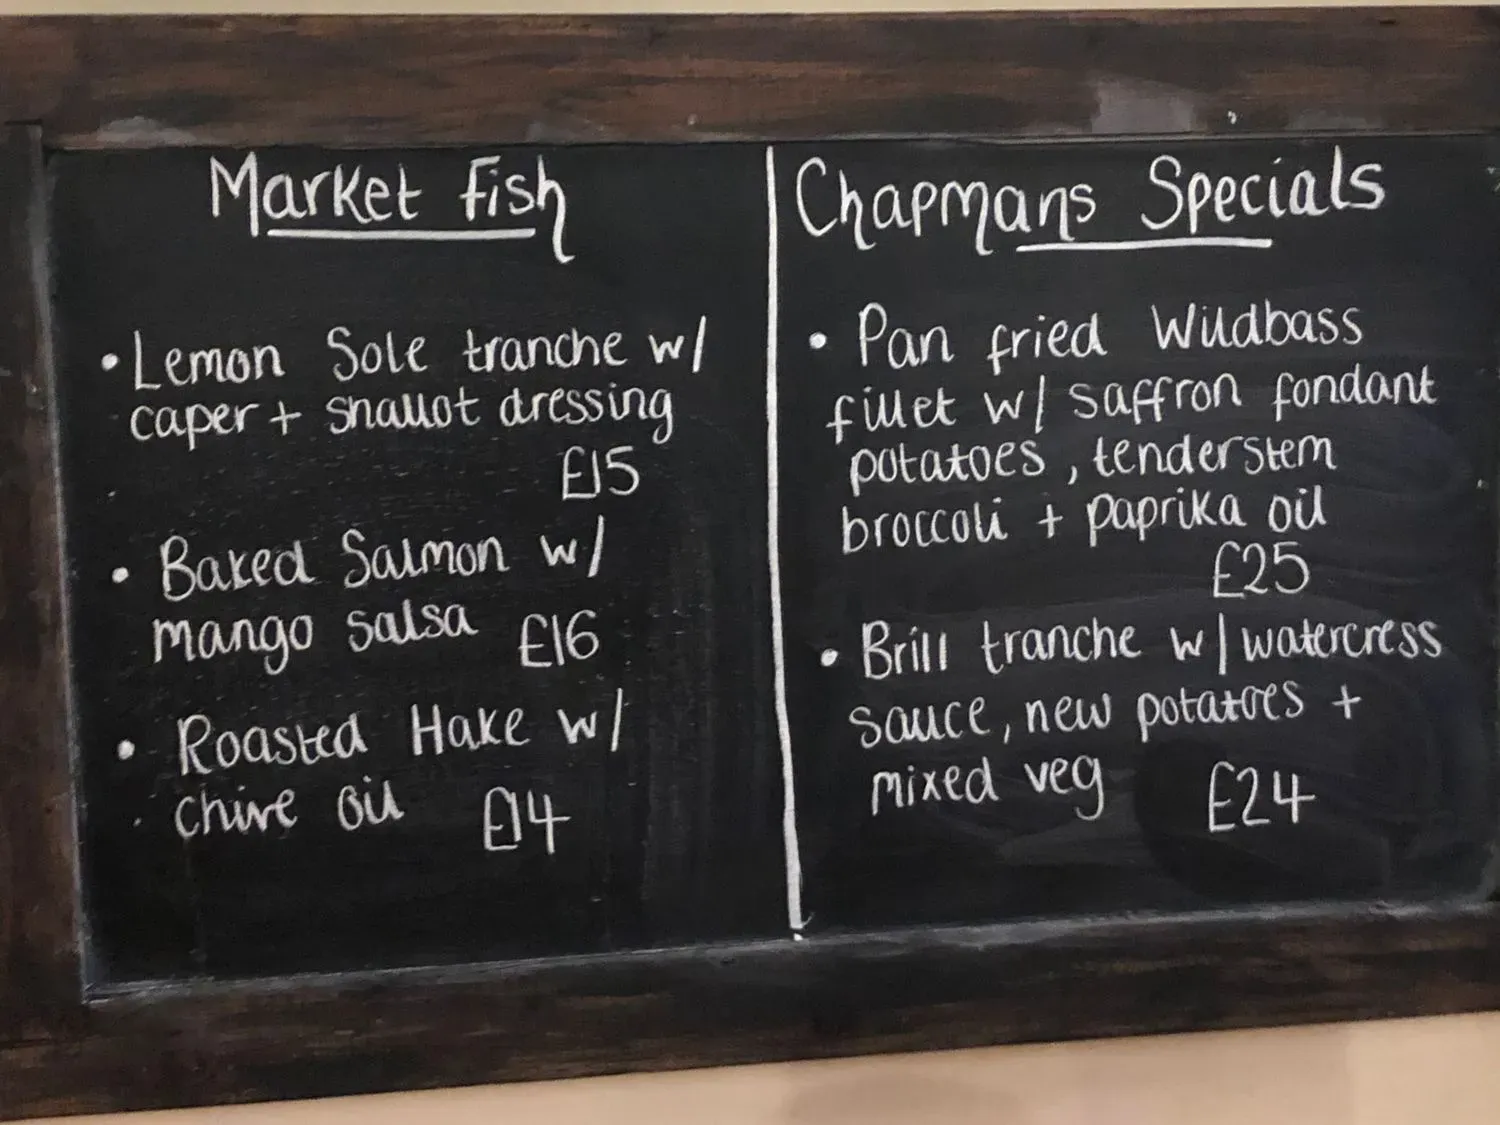 Market fish
• Lemon Sole tranche w/
caper + shallot dressing
£15
• Baked Salmon w/
mango salsa £16
• Roasted Hake w/
chive oil £14
Chapmans Specials
• Pan fried Wildbass
fillet w/ saffron fondant
potatoes, tenderstem
broccoli + paprika oil
£25
• Brill tranche w/ watercress
sauce, new potatoes +
mixed veg £24